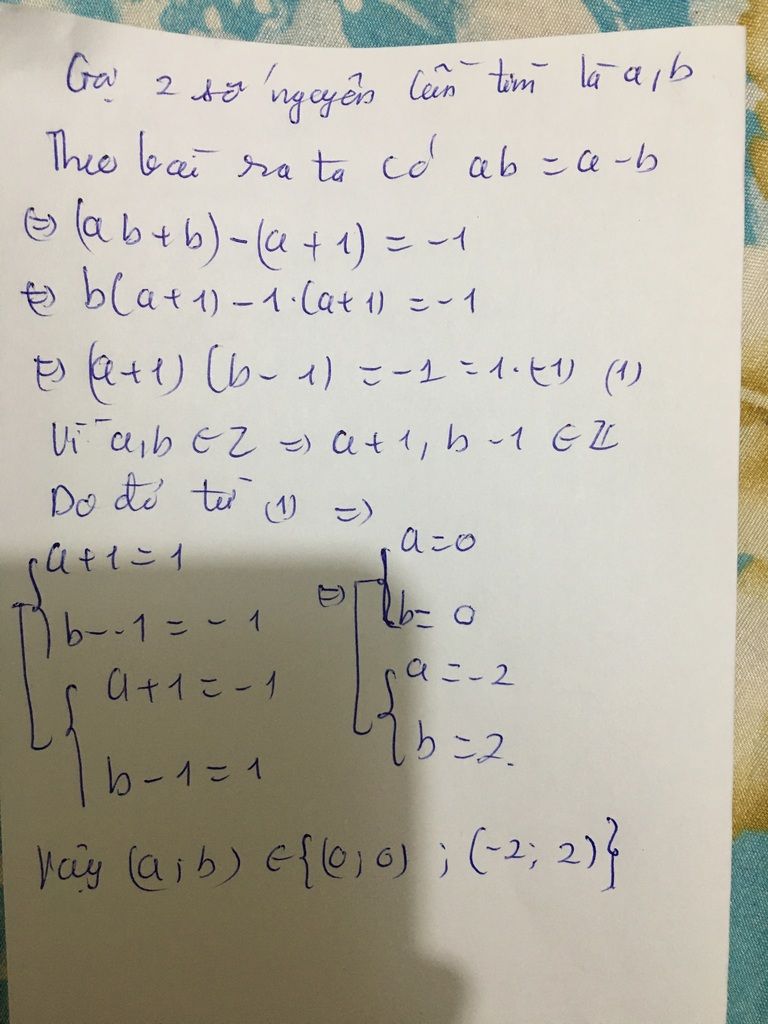 Gọi 2 số nguyên cần tìm là a, b
Theo bài ra ta có ab = a - b
⇔ (ab + b) - (a + 1) = -1
⇔ b(a + 1) - 1.(a + 1) = -1
⇔ (a + 1) (b - 1) = -1 = 1.(-1) (1)
Vì a, b ∈ Z ⇒ a + 1, b - 1 ∈ Z
Do đó từ (1) ⇒
a + 1 = 1
b - 1 = -1
a + 1 = -1
b - 1 = 1
⇔ a = 0
b = 0
a = -2
b = 2.
Vậy (a; b) ∈ {(0; 0) ; (-2; 2)}